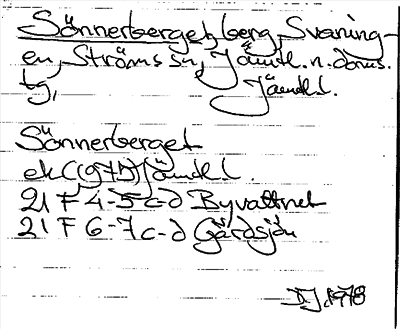 Sönnerberget, berg, Svaning-
en, Ströms sn, Jämtl. n. doms.
tg, Jämtl. l.
Sönnerberget
ek (1971) Jämtl l.
21 F 4-5 c-d Byvattnet
21 F 6-7 c-d Gårdsjön
DJ. 1978